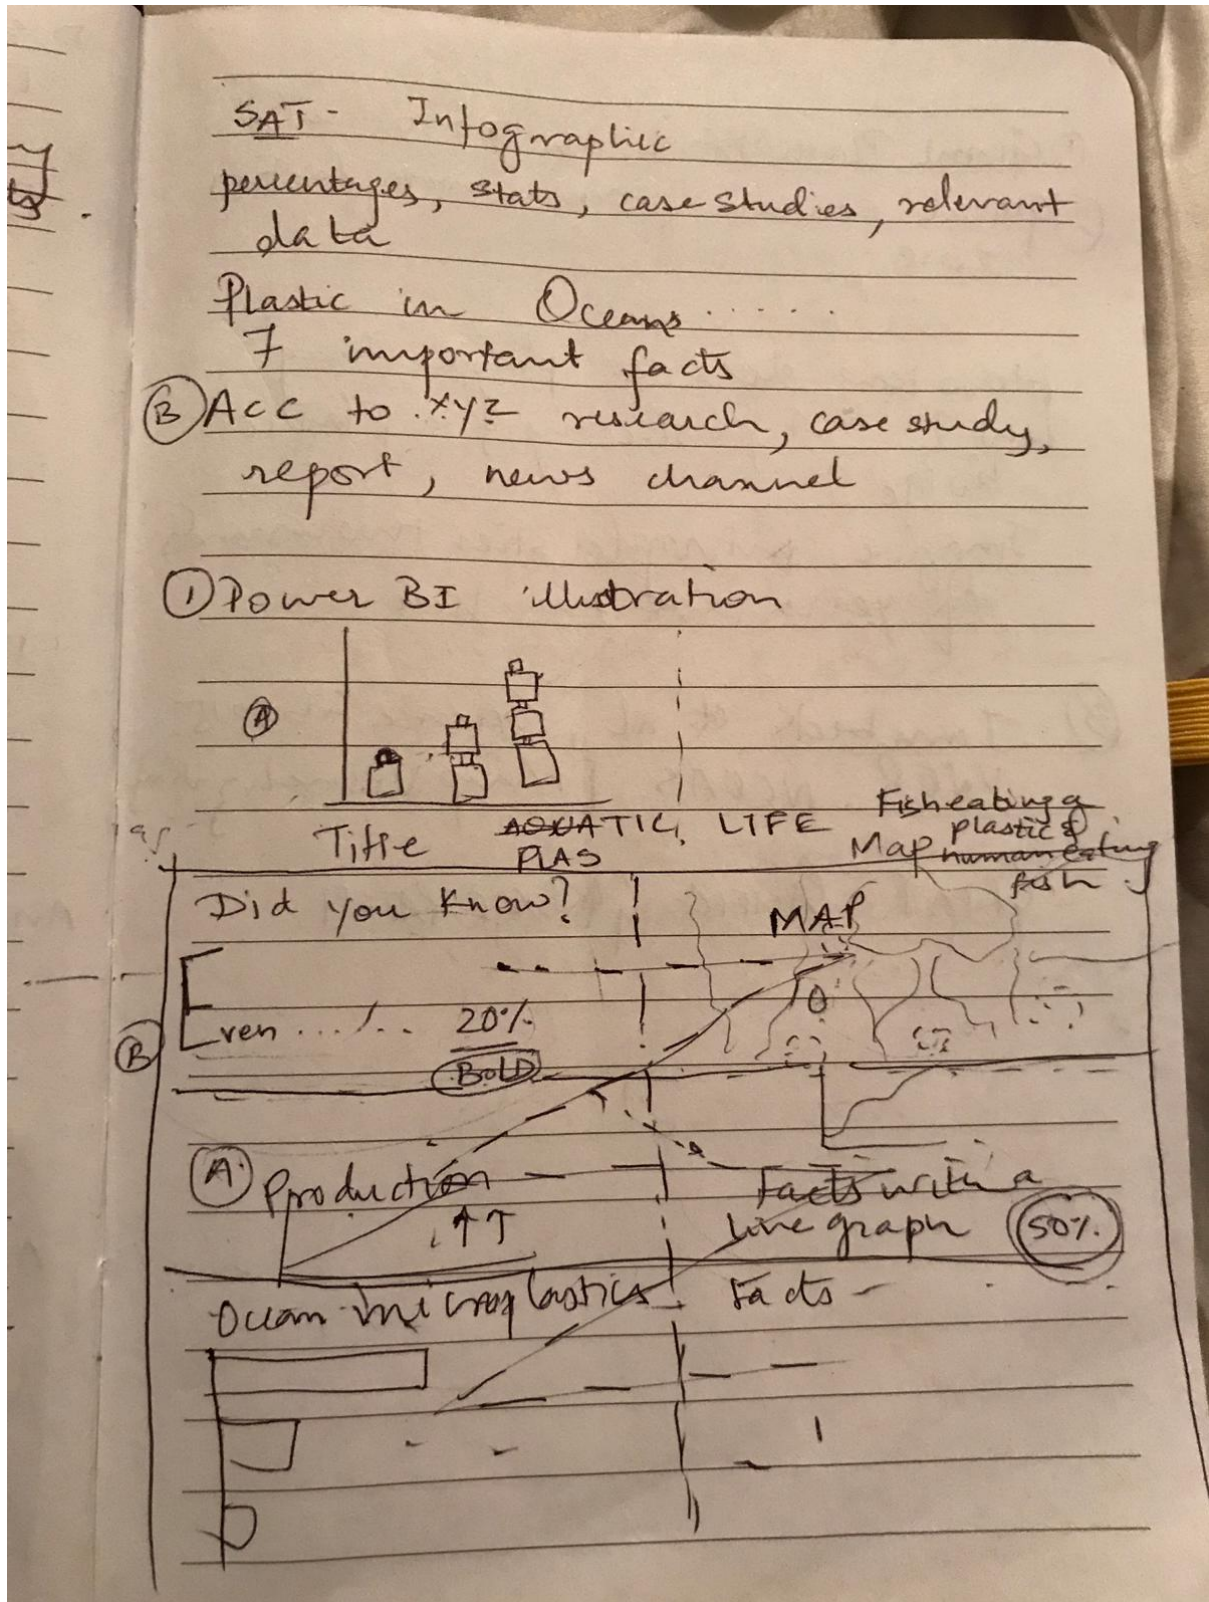 SAT - Infographic
percentages, stats, case studies, relevant
data
Plastic in Oceans ......
7 important facts
Ⓑ Acc to .xyz research, case study,
report, news channel
① Power BI illustration
Ⓐ
Title AQUATIC LIFE
PLAS
Fish eating
plastic &
Map human eating
fish
Did you know?
MAP
Even ... /.. 20%
BOLD
Ⓑ
Ⓐ Production
↑↑
Facts with a
line graph 50%
Ocean microplastics Facts -